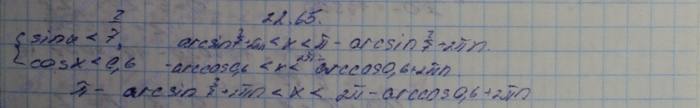 22.65.
{ sin x < 2/7, arcsin 2/7 + 2πn < x < π - arcsin 2/7 + 2πn.
{ cos x < 0,6 -arccos 0,6 < x < 2π arccos 0,6 + 2πn
π - arcsin 2/7 + 2πn < x < 2π - arccos 0,6 + 2πn